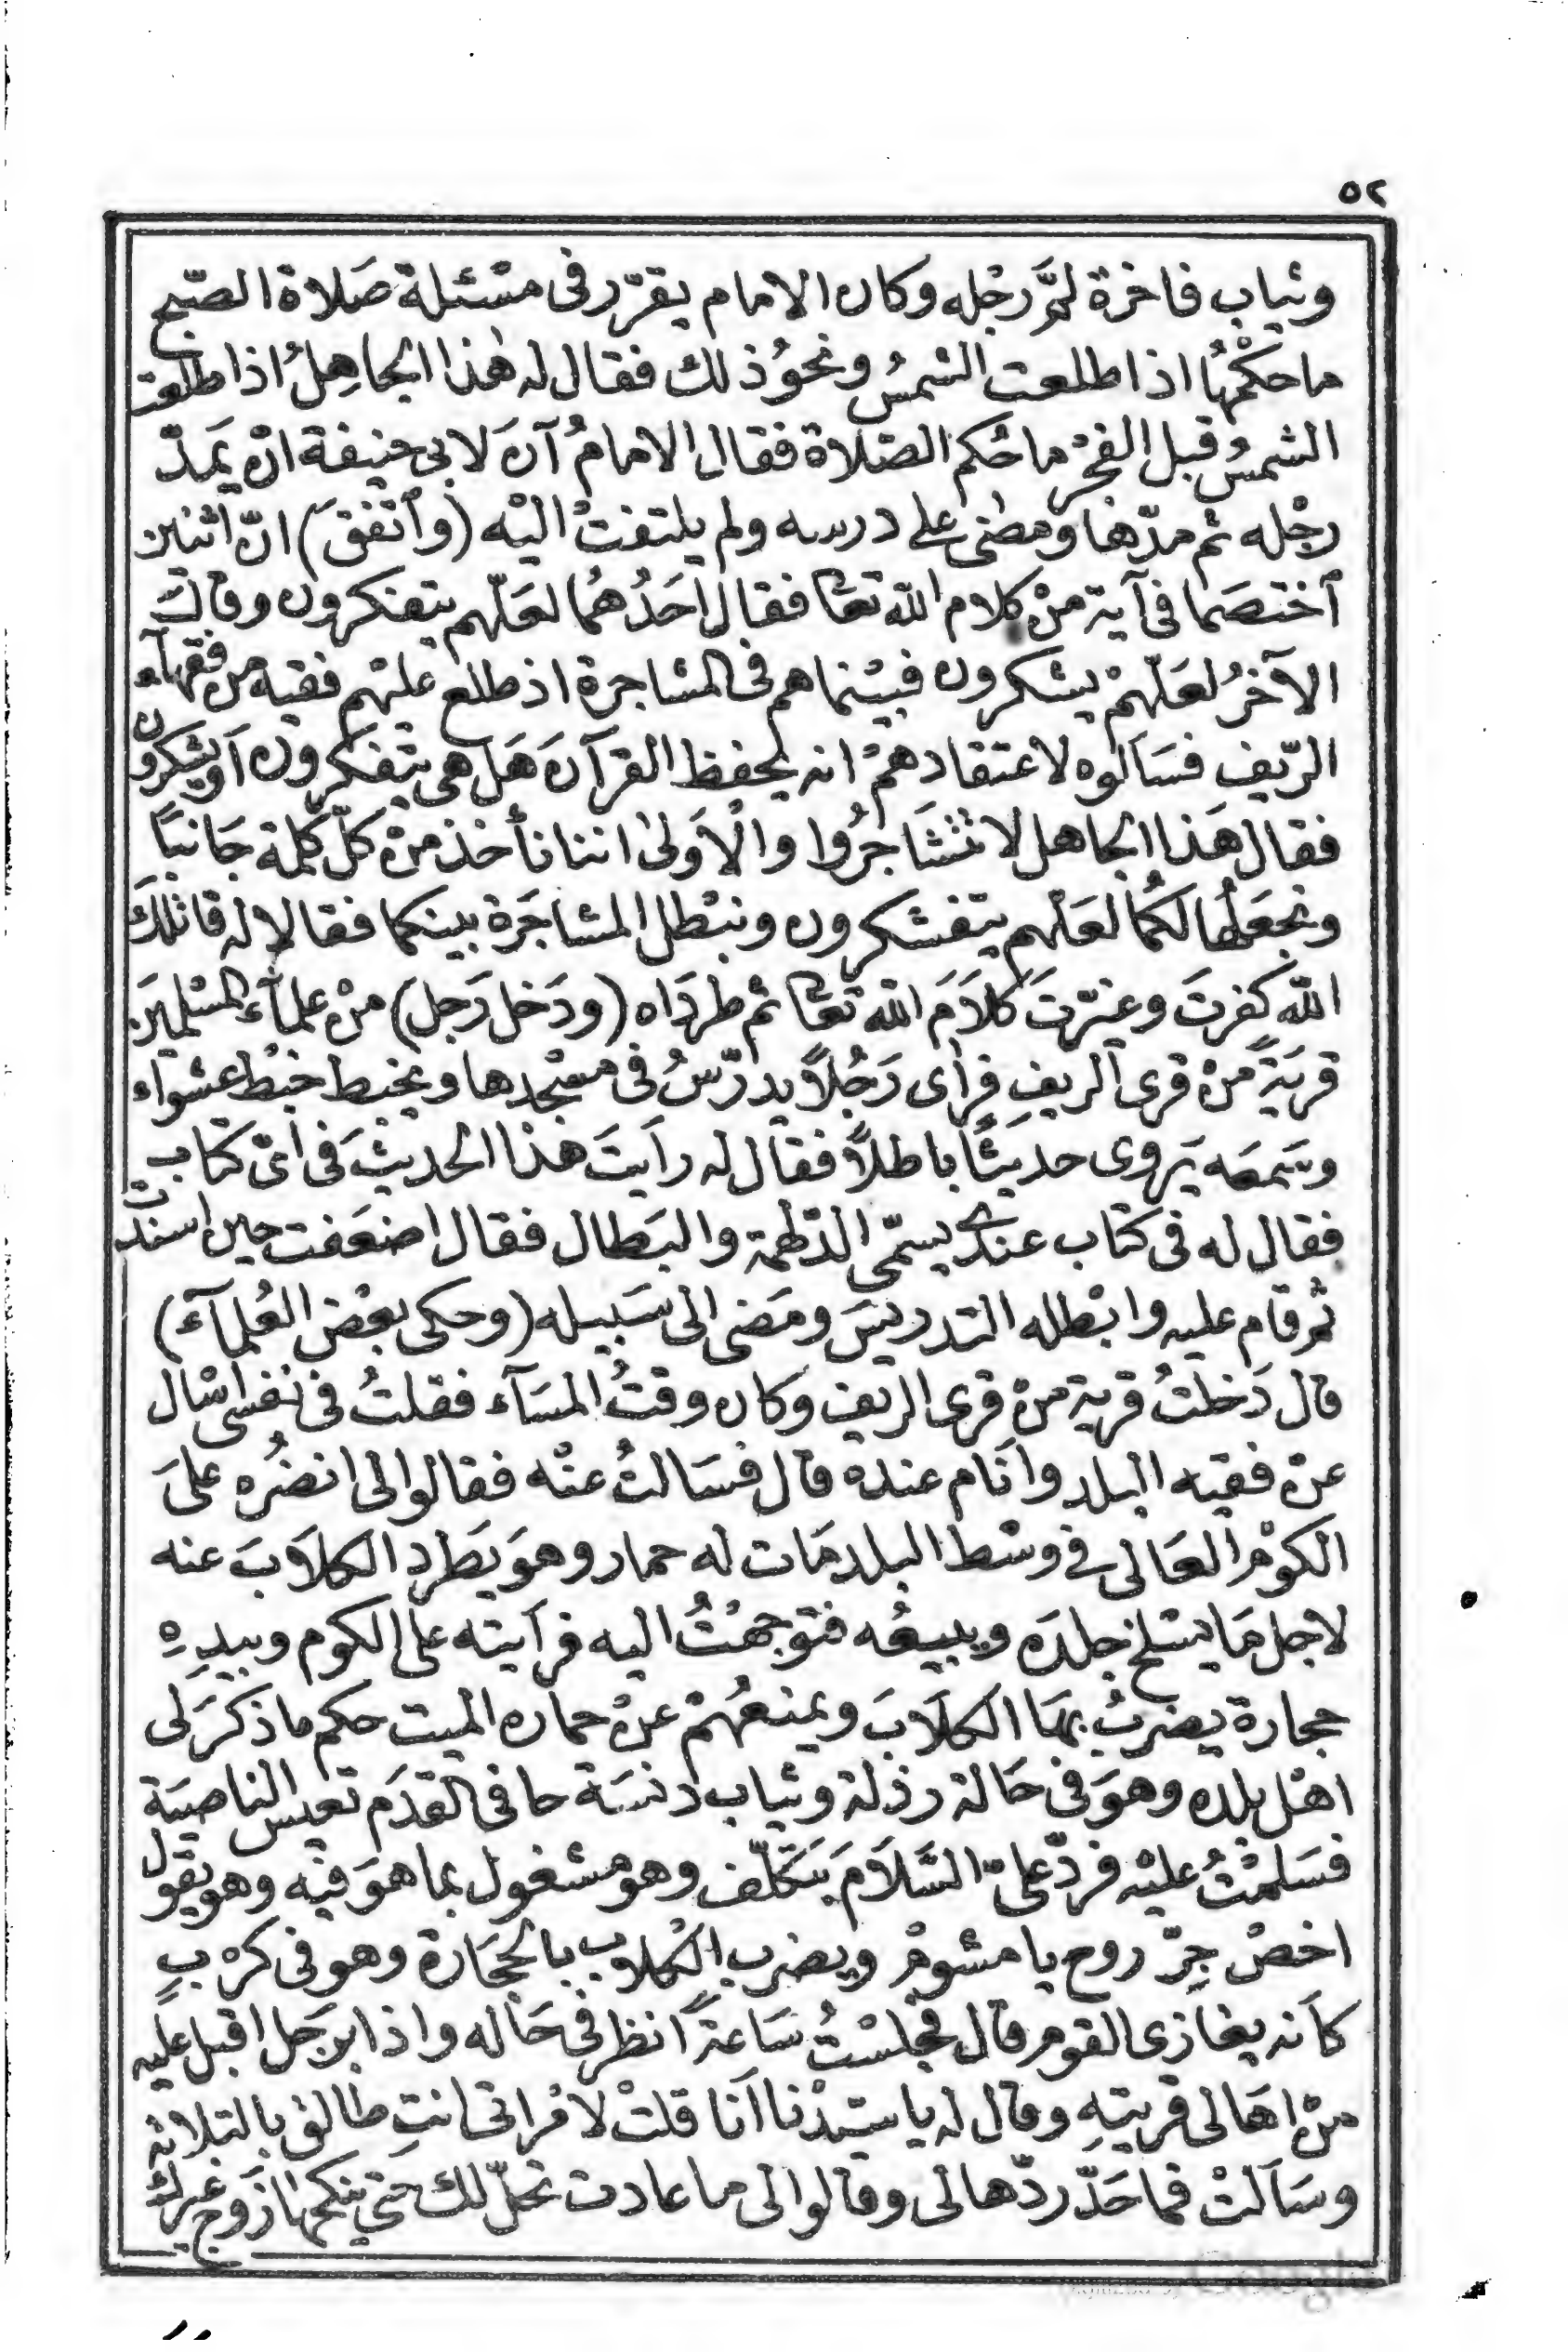 ٥٢
وثياب فاخرة لمّ رجْله وكان الامام يقرّر فى مسْئلة صَلاة الصّبح
ما حكْمُها اذا طلعت الشمسُ ونحوُ ذلك فقال له هٰذا الجاهِلُ اذا طلعت
الشمسُ قبل الفجْر ما حُكم الصّلاة فقال الامامُ آنَ لابى حنيفة انْ يَمدّ
رجْله ثم مدّها ومضى على درسه ولم يلتفتْ اليْه (وآتفقَ) انّ اثنين
آختصَما فى آية منْ كلام الله تعالى فقال احَدُهُما لعَلّهم يتفكرون وقال
الآخرُ لعَلّهمْ يشكرون فبيْنما هم فى المشاجرة اذ طلع عليْهم فقيه من فقهآء
الرّيف فسَألوه لاعتقادهمْ انه يحفظ القرآن هَل هى يتفكرون آو يشكرون
فقال هَذا الجاهل لا تتشَاجرُوا والأولىٰ اننا نأخذ منْ كلّ كلمة جَانبًا
ونجعَلُها لكُما لعَلّهم يتفشكرون ونبْطل المشاجَرة بينكما فقالا له قاتلك
الله كفرتَ وغيّرتَ كلاَمَ الله تعالى ثم طردَاه (ودَخل رَجل) منْ علمآء المسْلمينَ
قريَةً منْ قرى الريفِ فرأى رَجُلاً يدرّسُ فى مسْجدها ويخبط خبْط عشوآء
وسَمعَه يَروى حديثًا باطلاً فقال له رآيتَ هَذا الحديثَ فى أىّ كتاب
فقال له فى كتاب عندى يسمّى الدّلهمة والبَطال فقال اضعَفت حين اسندت
ثم قام عليه وابْطله التدريسَ ومَضى الى سَبيله (وحكى بعْض العُلمآء)
قال دَخلتُ قرية منْ قرى الريف وكان وقتُ المسَآء فقلتُ فى نفسى اسْال
عنْ فقيه البلد وآنَام عنده قال فسَالتُ عنْه فقالوا لى انضُره علىَ
الكوْم العَالى فى وسْط البلد مَات له حمار وهوَ يَطرد الكلاَبَ عنه
لاجل مَا يسْلخ جلدَه ويبيعُه فتوجهْتُ اليه فرآيته على الكوم وبيدِهِ
حجارة يضربُ بهَا الكلاَبَ ويمنعُهمْ عنْ حماره الميت حكم ما ذكرَ لى
اهْل بلده وهوَ فى حَالة رذلة وثياب دنسَة حافى القدَم تعيس الناصيَة
فسَلمْتُ عليْه فردّ علىّ السَّلاَمَ بتَكلّف وهو مشغول بما هوَ فيْه وهو يقول
اخصْ جِرّ روح يا مشومْ ويضرب الكلاب بالحجَارة وهو فى كرْبٍ
كآنه يغازى القوم قال فجلسْتُ سَاعةً آنظر فى حَاله واذا برَجل اقبل عليه
منْ اهَالى قريتِهِ وقال له يا سيّدْنا آنا قلتْ لامْراتى انتِ طالق بالتلاته
وسَآلتْ فما حَدّ ردّها لى وقالوا لى ما عادت تحلّ لك حتى تنكحها زَوج غيرك